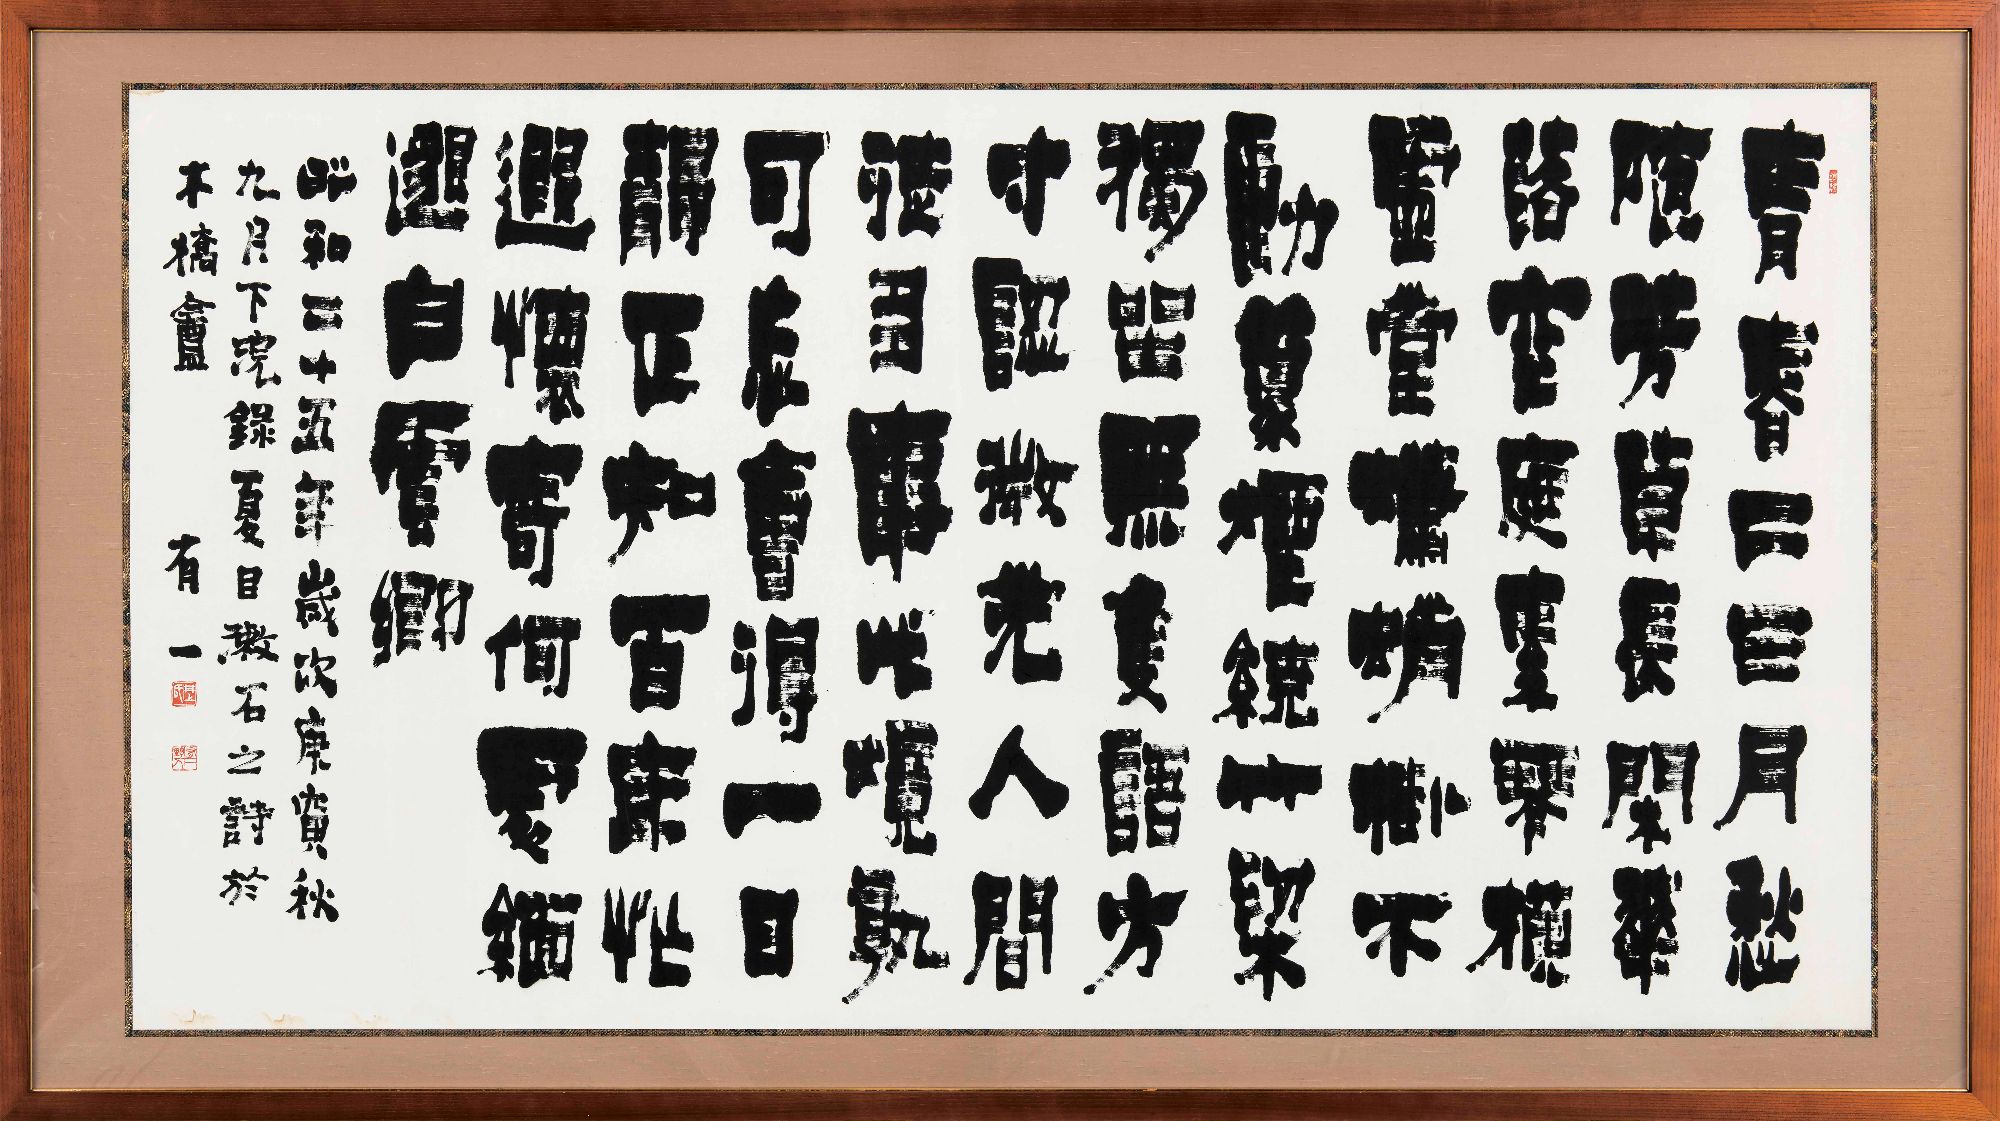 青春二三月愁
隨芳草長閑花
落空庭素琴横
虚堂蠨蛸掛不
動篆煙繞竹梁
獨坐無隻語方
寸認微光人間
徒多事此境孰
可忘會得一日
靜正知百年忙
遐懷寄何處緬
邈白雲郷
昭和二十五年歳次庚寅秋
九月下浣録夏目漱石之詩於
木橋盦 有一